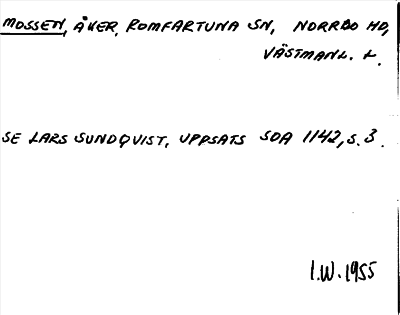 MOSSEN, ÅKER, ROMFARTUNA SN, NORRBO HD,
VÄSTMANL. L.
SE LARS SUNDQVIST, UPPSATS SDA 1142, S. 3.
I.W. 1955